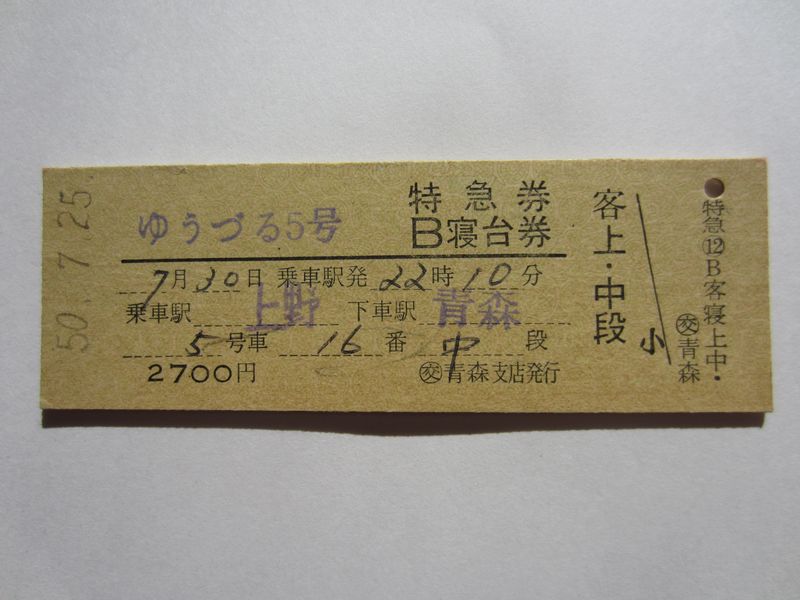 50.-7.25.
ゆうづる5号
特急券
B寝台券
7月30日 乗車駅発 22時10分
乗車駅 上野 下車駅 青森
5号車 16番 中段
2700円 ㊋青森支店発行
客上・中段
小
特急⑫B客寝上中・
青森